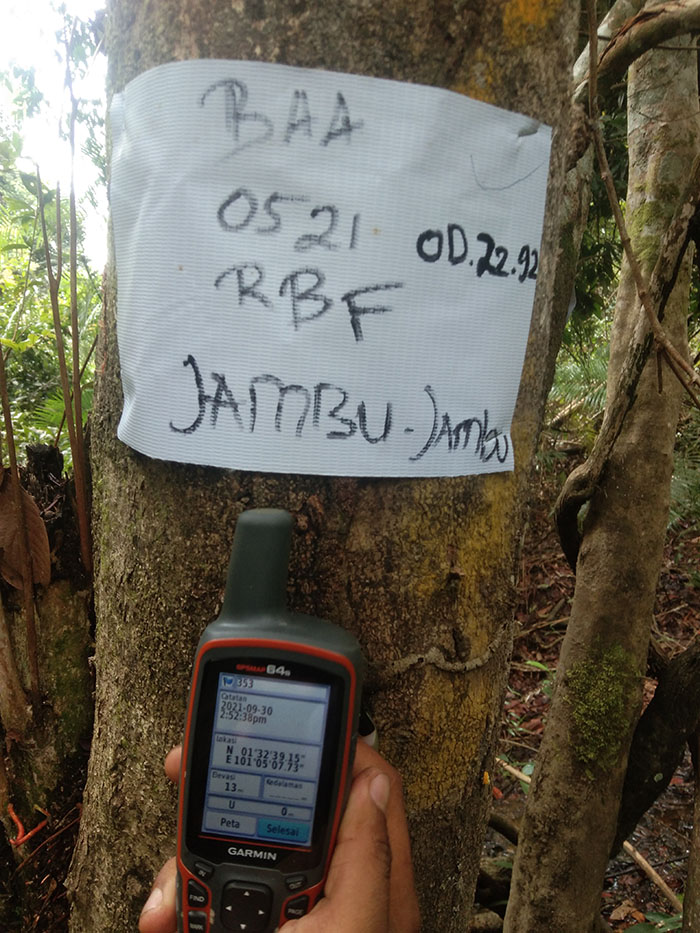 BAA
0521
OD.22.92
RBF
JAMBU-Jambu
GPSMAP 64s
353
Catatan
2021-09-30
2:52:38pm
Lokasi
N 01°32'39.15"
E 101°05'07.73"
Elevasi
13 m
Kedalaman
_____ m
U
0 m
Peta
Selesai
GARMIN
IN
OUT
FIND
MARK
PAGE